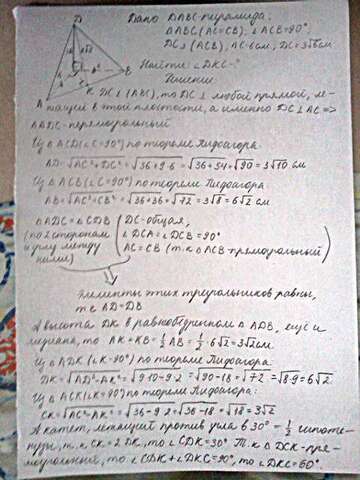 D
Дано DABC-пирамида.
△ABC (AC=CB), ∠ACB=90°
DC⊥(ACB), AC=6см, DC=3√6см
Найти: ∠DKC-?
Решение:
A K B
DC⊥(ABC), то DC⊥ любой прямой, ле-
жащей в этой плоскости, а именно DC⊥AC =>
△ADC-прямоугольный
Из △ACD(∠C=90°) по теореме Пифагора:
AD=√AC²+DC² = √36+9·6 = √36+54 = √90 = 3√10 см
Из △ACB(∠C=90°) по теореме Пифагора:
AB=√AC²+CB² = √36+36 = √72 = 3√8 = 6√2 см
△ADC=△CDB
(по 2 сторонам
и углу между
ними)
DC-общая,
∠DCA=∠DCB=90°
AC=CB (т.к △ACB-прямоугольный)
Элементы этих треугольников равны,
т.е AD=DB
А высота DK в равнобедренном △ADB, ещё и
медиана, то AK=KB=½AB=½·6√2=3√2см.
Из △ADK (∠K=90°) по теореме Пифагора:
DK=√AD²-AK² = √9·10-9·2 = √90-18 = √72 = √8·9 = 6√2.
Из △ACK(∠K=90°) по теореме Пифагора:
CK=√AC²-AK² = √36-9·2 = √36-18 = √18 = 3√2
А катет, лежащий против угла в 30° = ½ гипоте-
нузы, т.к CK=2DK, то ∠CDK=30° Т.к △DCK-пря-
моугольный, то ∠CDK+∠DKC=90°, то ∠DKC=60°.